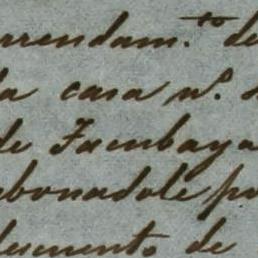 rrendam.to de
la casa n.o
de Jambaya
abonadole po
dumento de